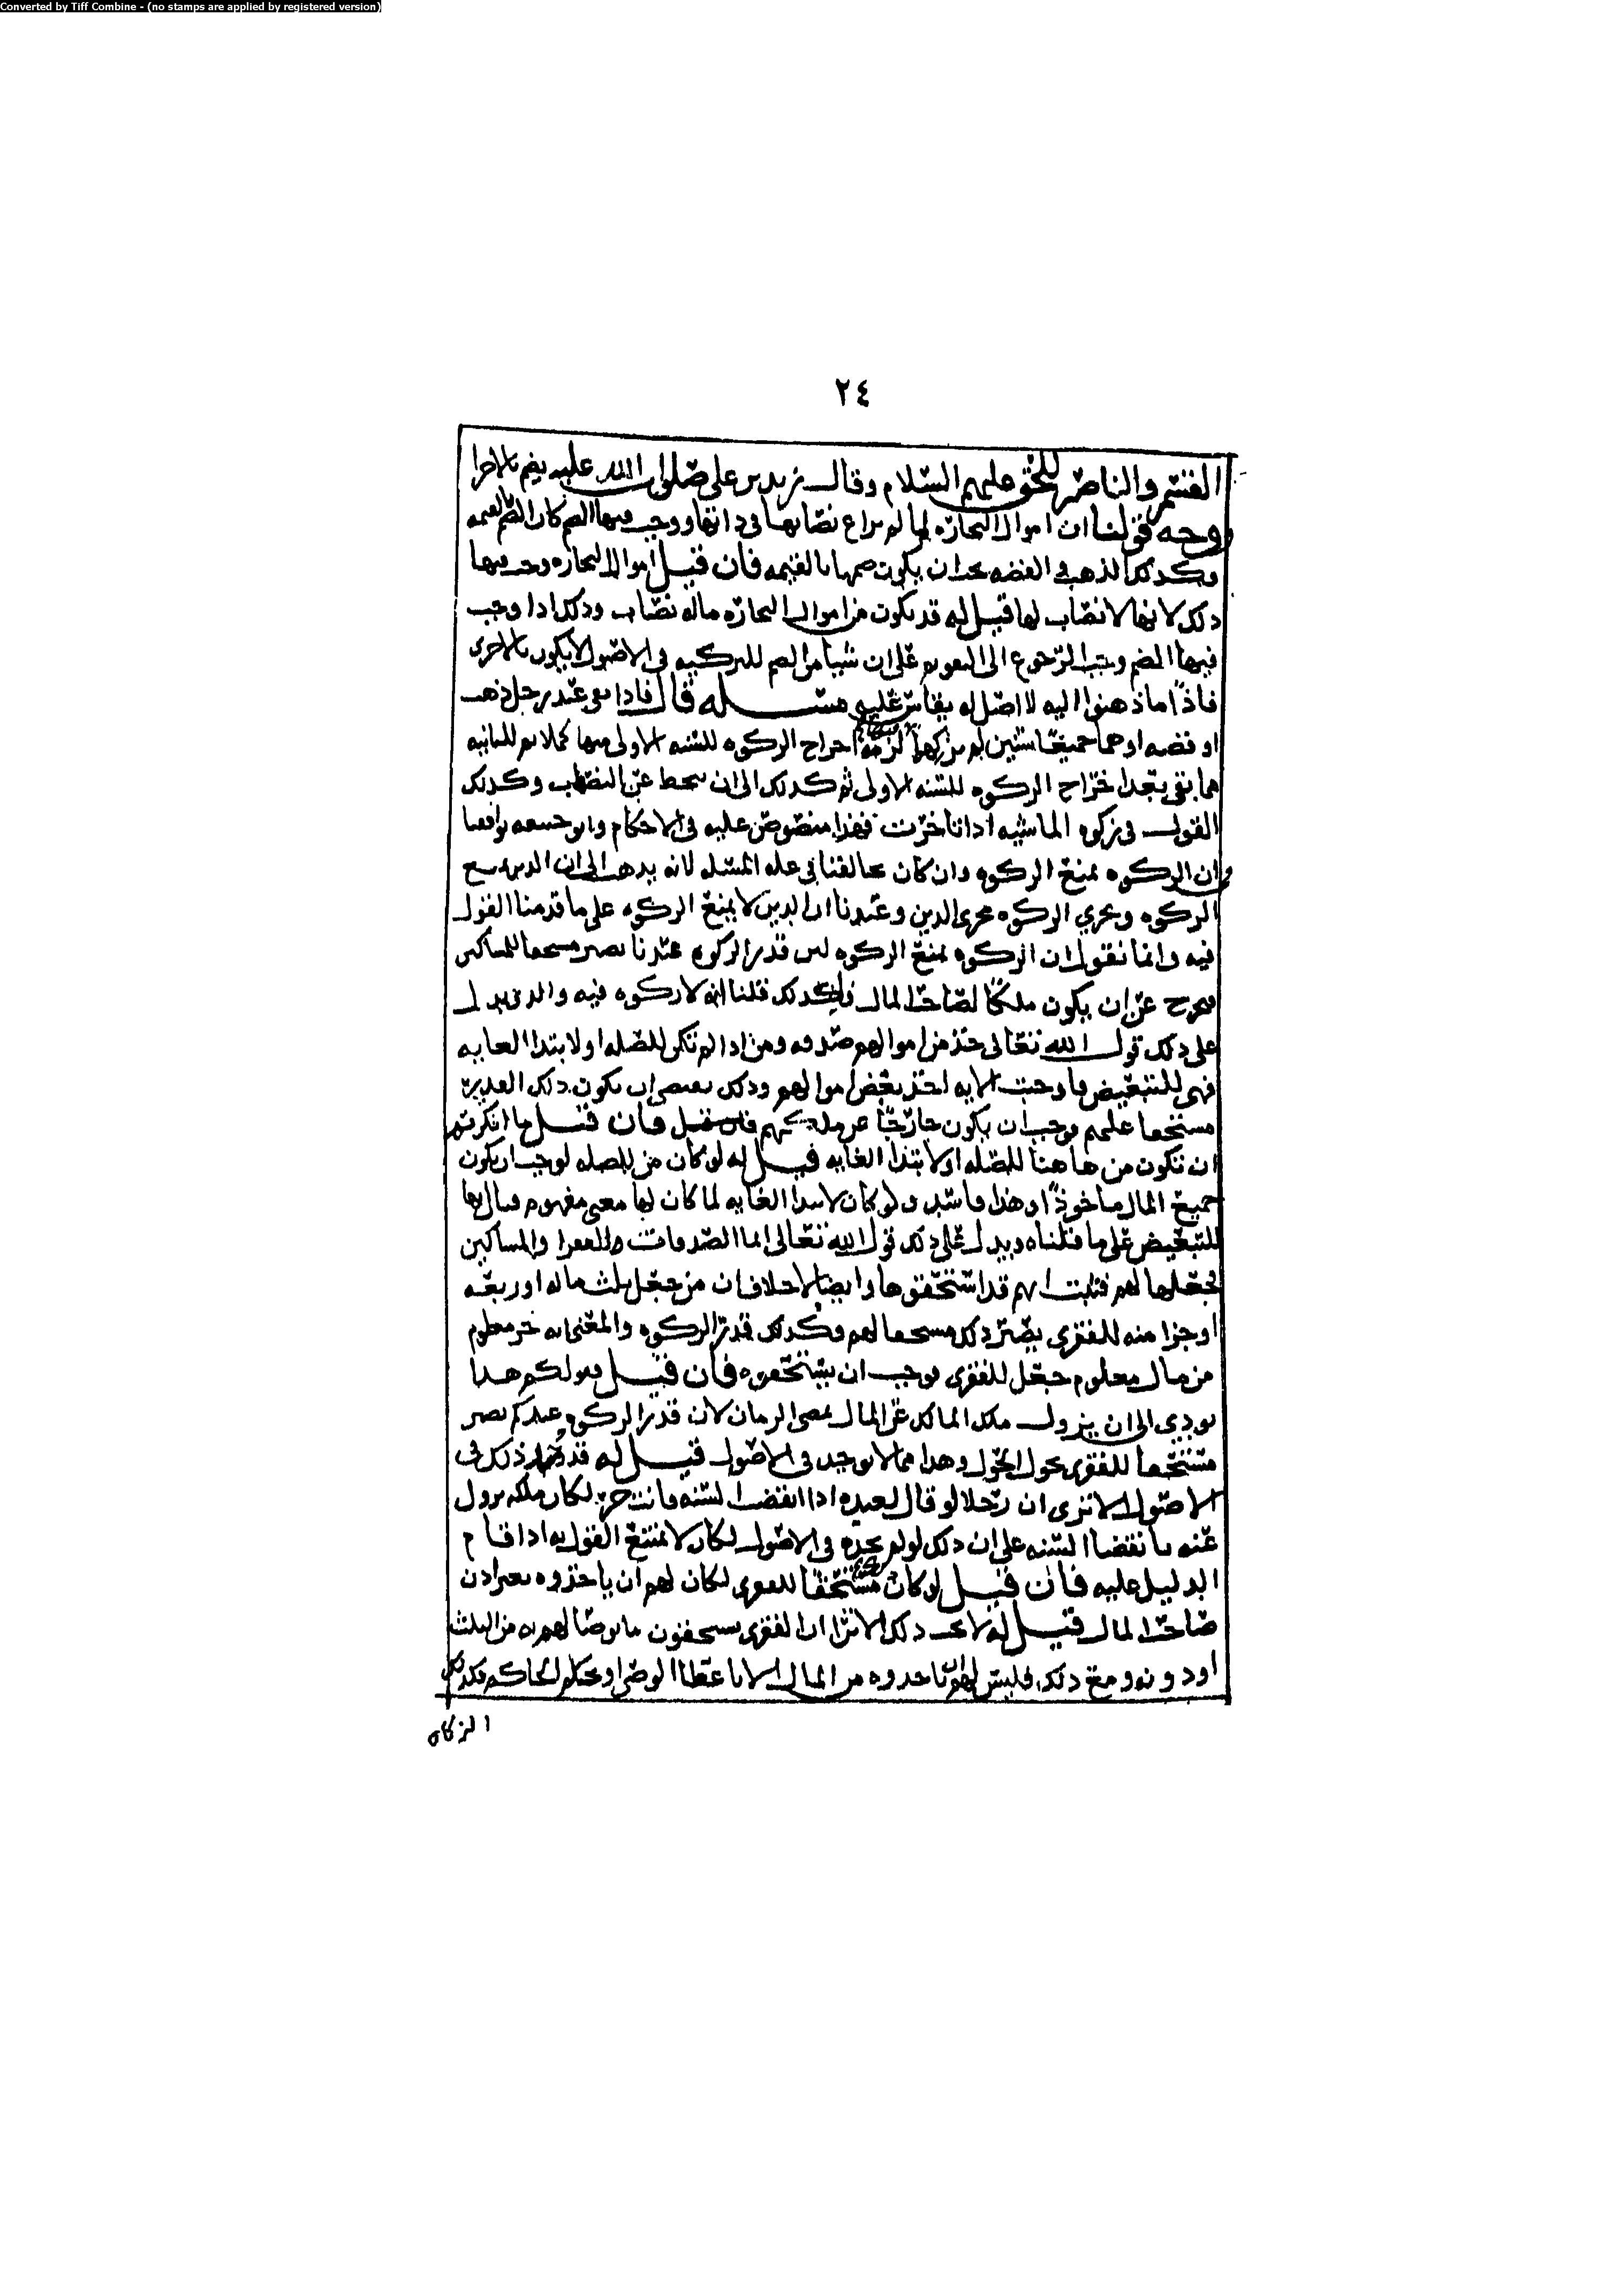 Converted by Tiff Combine - (no stamps are applied by registered version)
٢٤
القسم والناصر للحق عليهم السلام وقال زيد بن علي صلوات الله عليه يضم بالاجزا
وجه قولنا ان اموال التجاره لما لم يراع نصابها في ذاتها ووجب فيها الضم كان الضم بالقيمه
وكذلك الذهب والفضه يجب ان يكون ضمها بالقيمه فان قيل اموال التجاره وجب فيها
ذلك لانها لا نصاب لها قيل له قد يكون من اموال التجاره ماله نصاب وذلك اذا وجب
فيها الضم وجب الرجوع الى التقويم على ان شيا من الضم للتزكيه في الاصول لا يكون بالاجزى
فاذاً ما ذهبوا اليه لا اصل له يقاس عليه مسله قال فاذا بقي عند رجل ذهب
او فضه او هما جميعا سنين لم يزكها لزمه اخراج الزكوه للسنه الاولى منها كملا ثم للثانيه
مما بقي بعد اخراج الزكوه للسنه الاولى ثم كذلك الى ان ينحط عن النصاب وكذلك
القول في زكوه الماشيه اذا تاخرت فهذا منصوص عليه في الاحكام وابو حنيفه يوافقنا
في ان الزكوه تمنع الزكوه وان كان يخالفنا في عله المسله لانه يذهب الى ان الدين يمنع
الزكوه ويجري الزكوه مجرى الدين وعندنا ان الدين لا يمنع الزكوه على ما قدمنا القول
فيه وانما نقول ان الزكوه تمنع الزكوه لان قدر الزكوه عندنا يصير مستحقا للمساكين
فيخرج عن ان يكون ملكا لصاحب المال فلذلك قلنا انه لا زكوه فيه والذي يدل
على ذلك قول الله تعالى خذ من اموالهم صدقه ومن اذا لم تكن للصله او لابتدا الغايه
فهي للتبعيض فاوجبت الايه اخذ بعض اموالهم وذلك يقتضي ان يكون ذلك القدر
مستحقا عليهم فوجب ان يكون خارجا عن ملكهم فان قيل ما انكرتم
ان تكون من هاهنا للصله او لابتدا الغايه قيل له لو كان من للصله لوجب ان يكون
جميع المال ماخوذاً وهذا فاسد ولو كان لابتدا الغايه لما كان لها معنى مفهوم فبان انها
للتبعيض على ما قلناه ويدل على ذلك قول الله تعالى انما الصدقات للفقرا والمساكين
فجعلها لهم فثبت انهم قد استحقوها وايضا لا خلاف ان من جعل ثلث ماله او ربعه
او جزا منه للفقرى يصير ذلك مستحقا لهم فكذلك قدر الزكوه والمعنى انه جز معلوم
من مال معلوم جعل للفقرى فوجب ان يستحقوه فان قيل قولكم هذا
يودي الى ان يزول ملك المالك عن المال بمضي الزمان لان قدر الزكوه عندكم يصير
مستحقا للفقرى بحول الحول وهذا مما لا يوجد في الاصول قيل له قد ذلك في
الاصول الا ترى ان رجلا لو قال لعبده اذا انقضت السنه فانت حر لكان ملكه يزول
عنه بانقضا السنه على ان ذلك لو لم نجده في الاصول لكان لا يمتنع القول به اذا قام
الدليل عليه فان قيل لو كان مستحقا للفقرى لكان لهم ان ياخذوه بغير اذن
صاحب المال قيل له لا يجب ذلك الا ترا ان الفقرى يستحقون ما يوصا لهم به من الثلث
او دونه ومع ذلك فليس لهم ان ياخذوه من المال الا باعطا الوصي او بحكم الحاكم فكذلك
الزكاه